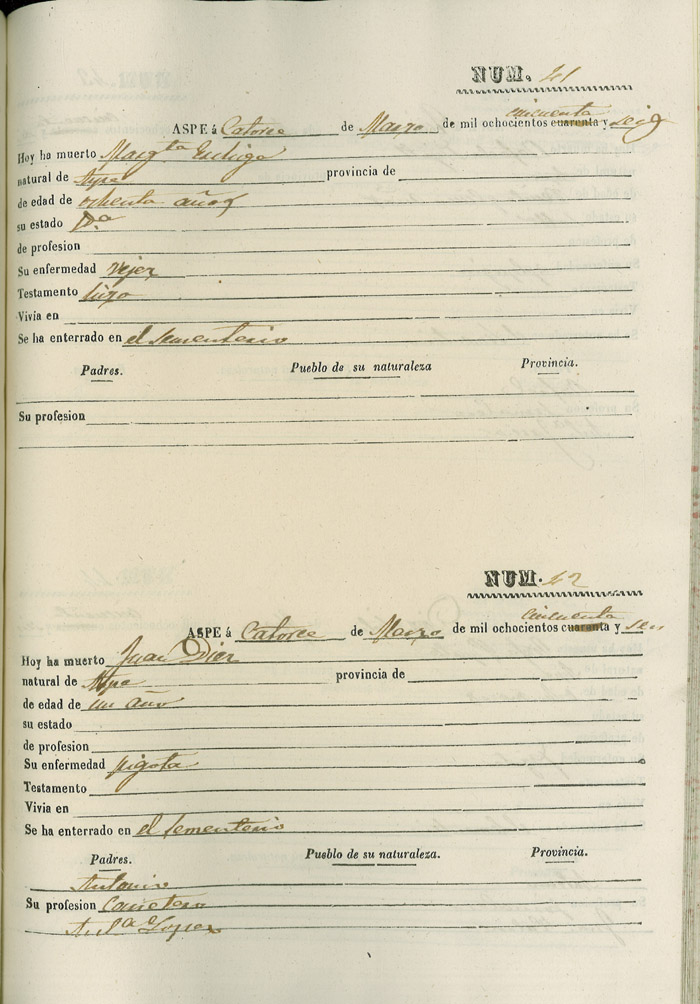 NUM. 41
cincuenta
ASPE á Catorce de Marzo de mil ochocientos cuarenta y seis
Hoy ha muerto Marg.ta
natural de Aspe provincia de
de edad de ochenta años
su estado V.a
de profesion
Su enfermedad Vejez
Testamento hizo
Vivia en
Se ha enterrado en el Sementerio
Padres. Pueblo de su naturaleza Provincia.
Su profesion
NUM. 42
cincuenta
ASPE á Catorce de Marzo de mil ochocientos cuarenta y seis
Hoy ha muerto Juan Diez
natural de Aspe provincia de
de edad de un año
su estado
de profesion
Su enfermedad pigota
Testamento
Vivia en
Se ha enterrado en el Sementerio
Padres. Pueblo de su naturaleza. Provincia.
Antonio
Su profesion Carretero
Lopez